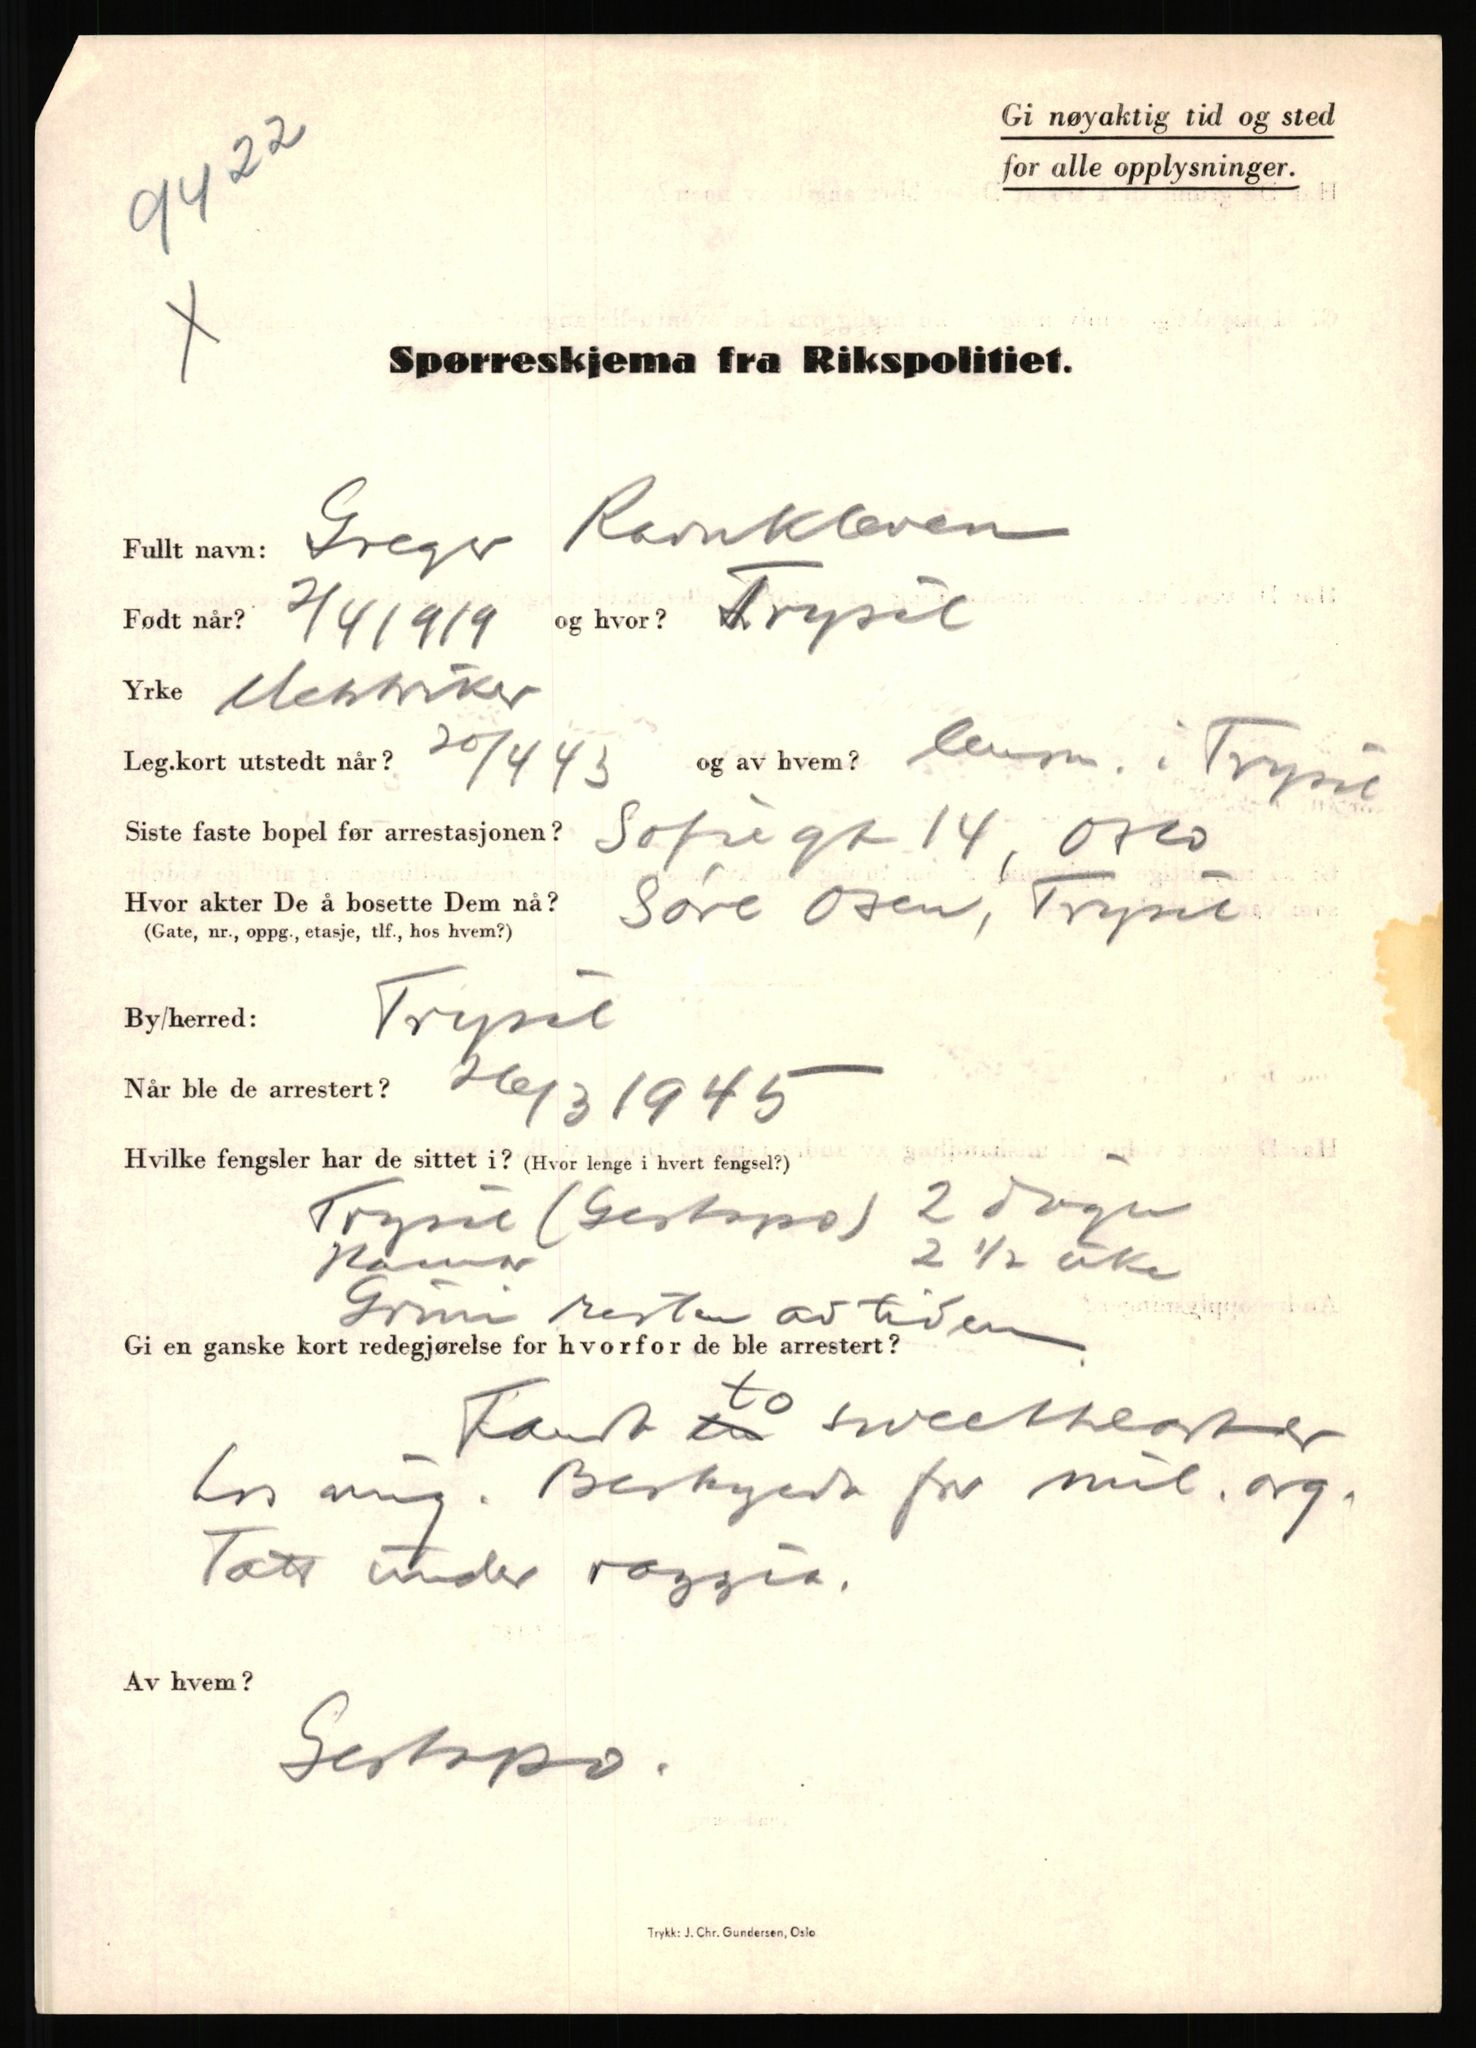 Gi nøyaktig tid og sted
for alle opplysninger.
9422
X
Spørreskjema fra Rikspolitiet.
Fullt navn: Greger Ravnkleven
Født når? 2/4 1919 og hvor? Trysil
Yrke
Leg.kort utstedt når? 20/4 43 og av hvem? lensm. i Trysil
Siste faste bopel før arrestasjonen? Sofiegt 14, Oslo
Hvor akter De å bosette Dem nå? Søre Osen, Trysil
(Gate, nr., oppg., etasje, tlf., hos hvem?)
By/herred: Trysil
Når ble de arrestert? 26/3 1945
Hvilke fengsler har de sittet i? (Hvor lenge i hvert fengsel?)
Trysil (Gestapo) 2 døgn
Hamar 2 1/2 uke
Grini resten av tiden.
Gi en ganske kort redegjørelse for hvorfor de ble arrestert?
Fandt to sweethearter
hos mig. Beskyldt for mil. org.
Tatt under razzia.
Av hvem?
Gestapo.
Trykk: J. Chr. Gundersen, Oslo